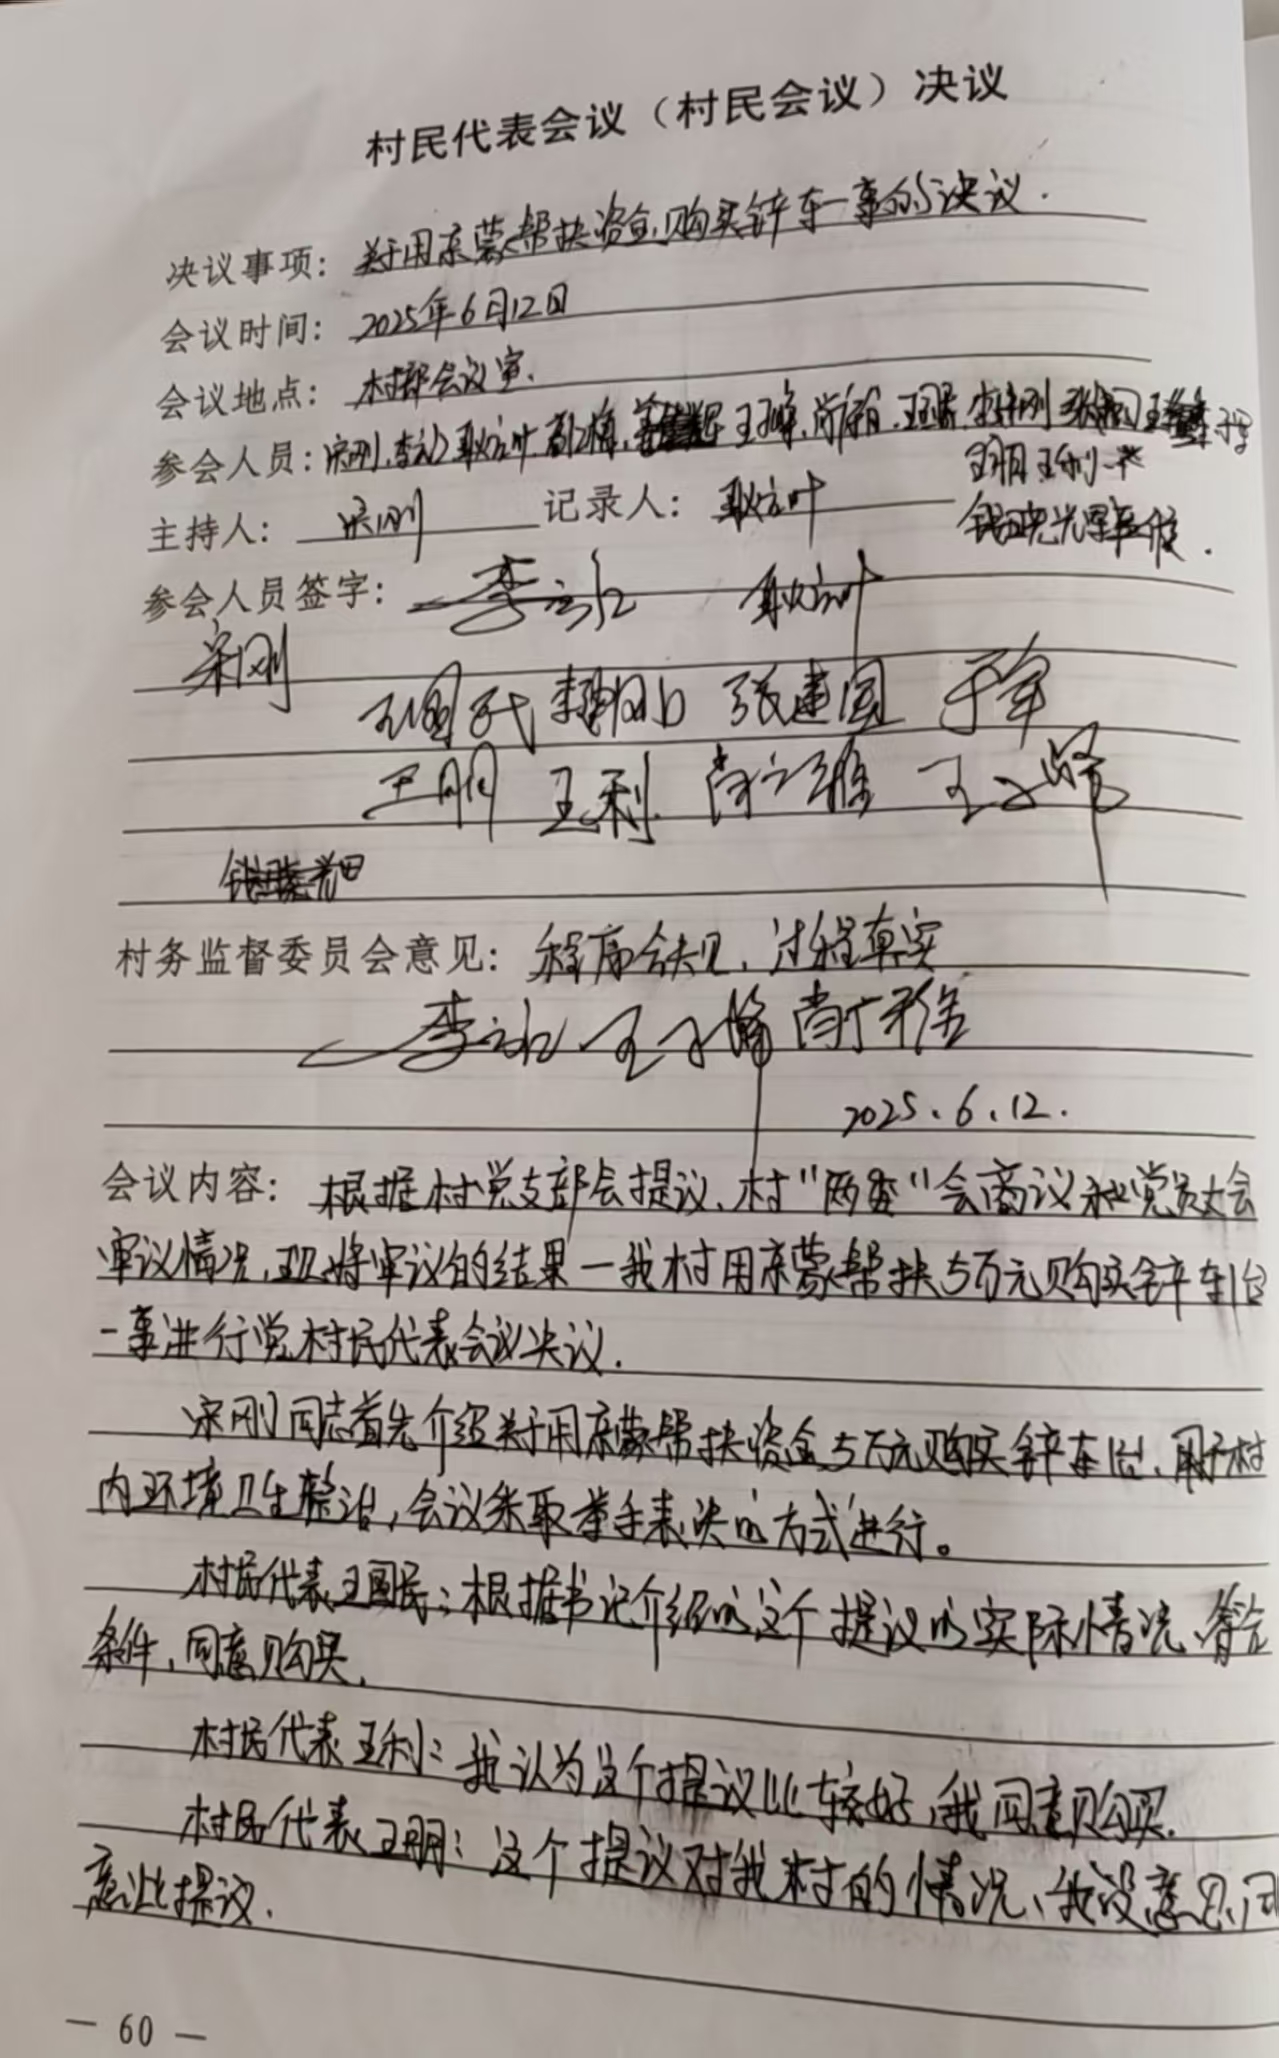 村民代表会议（村民会议）决议
决议事项：关于用京蒙帮扶资金购买铲车一事的决议.
会议时间：2025年6月12日
会议地点：村部会议室.
参会人员：宋刚、李 耿 王子峰、尚
王朋 王利
主持人：宋刚 记录人：耿
参会人员签字：李 耿
宋刚
王国 张建国 于军
王朋 王利 尚 王子峰
村务监督委员会意见：程序合规、过程真实
李 王子峰 尚
2025.6.12.
会议内容：根据村党支部会提议、村“两委”会商议和党员大会
审议情况，现将审议的结果一我村用京蒙帮扶5万元购买铲车1台
一事进行党村民代表会议决议.
宋刚同志首先介绍关于用京蒙帮扶资金5万元购买铲车1台、用于村
内环境卫生整治，会议采取举手表决的方式进行。
村民代表王国民：根据书记介绍的这个提议的实际情况、符合
条件、同意购买.
村民代表王利：我认为这个提议比较好，我同意购买.
村民代表王朋：这个提议对我村的情况、我没意见、同
意此提议.
— 60 —